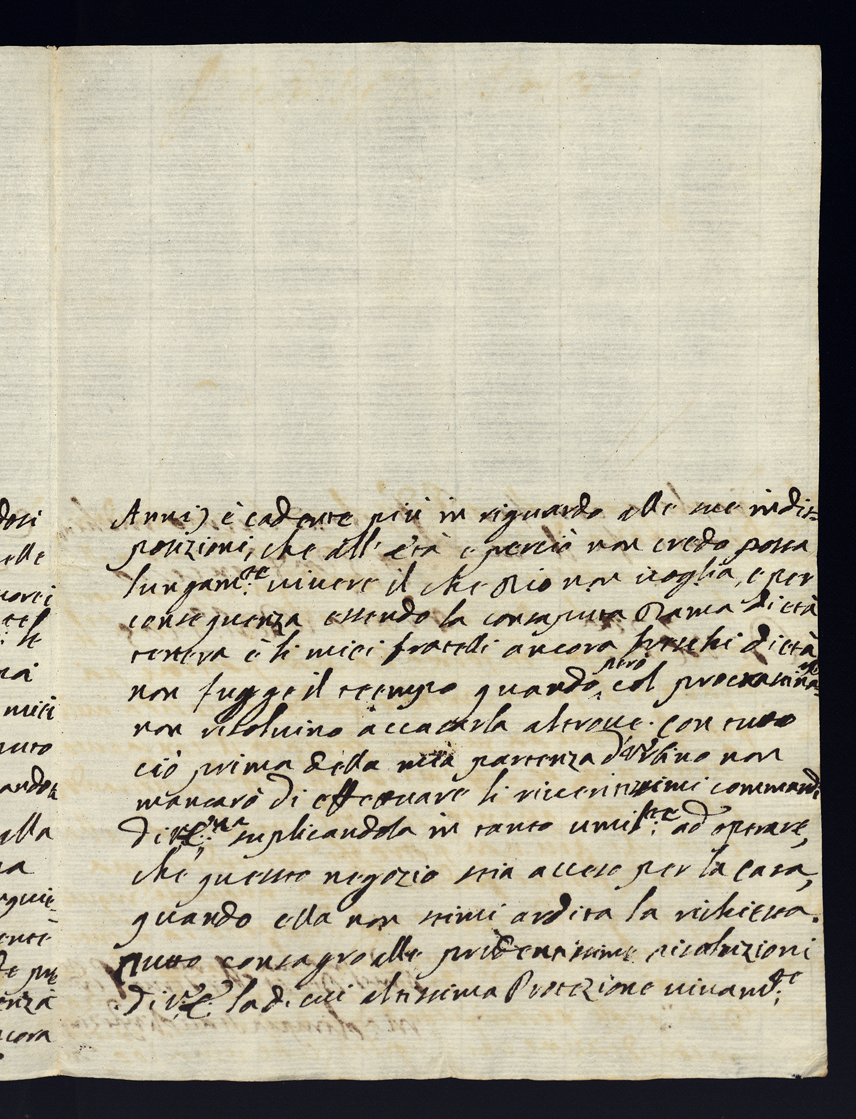 Anni) è cadente più in riguardo alle sue indis=
posizioni, che all' età e perciò non credo possa
lungam:te vivere il che Dio non voglia, e per
conseguenza essendo la consaputa Dama di età
tenera e li miei fratelli ancora freschi di età
non fugge il tempo quando però col procrastinar
non risolvino accasarla altrove. Con tutto
ciò prima della mia partenza d'Urbino non
mancarò di effettuare li riveritissimi commandi
di V. E:, suplicandola in tanto umil:te ad operare,
che questo negozio stia acceso per la Casa,
quando ella non stimi ardita la richiesta.
Tutto consagro alle prudentissime risoluzioni
di V. E. la di cui altissima Protezione vivam:te
dosi
elle
vorei
le
mai
miei
alla
ancora